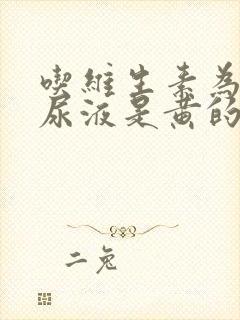 喫維生素為
尿液是黃的
二兔